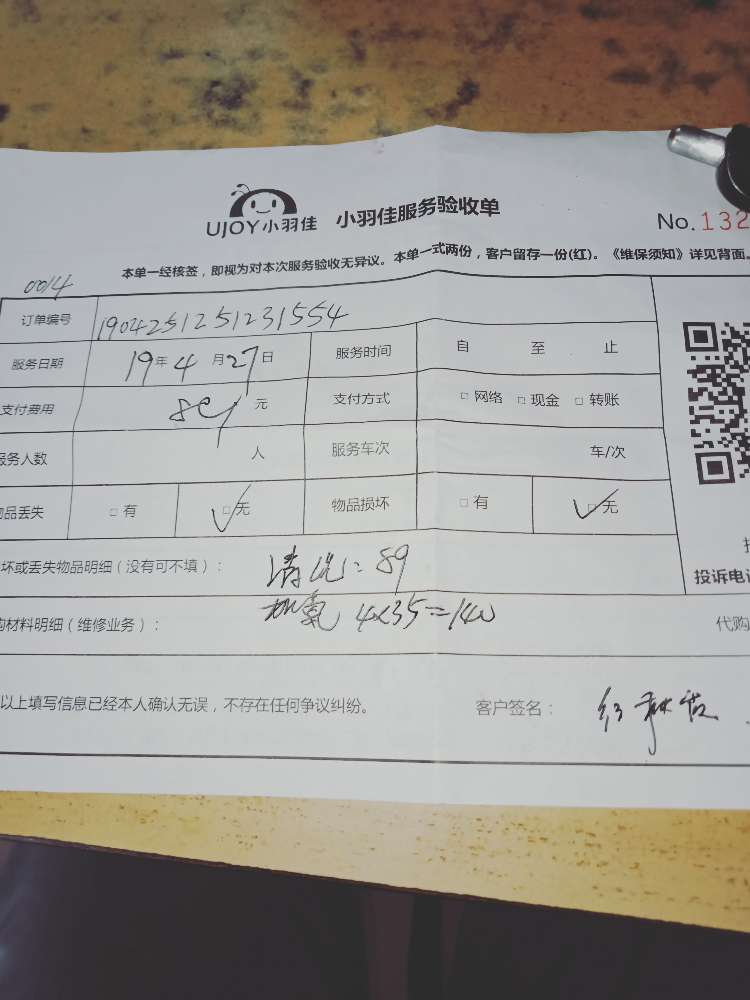 UJOY小羽佳 小羽佳服务验收单
No.132
本单一经核签，即视为对本次服务验收无异议。本单一式两份，客户留存一份(红)。《维保须知》详见背面。
0014
订单编号 1904251251231554
服务日期 19年4月27日 服务时间 自 至 止
支付费用 89 元 支付方式 □网络 □现金 □转账
服务人数 人 服务车次 车/次
品丢失 □有 □无 物品损坏 □有 □无
坏或丢失物品明细（没有可不填）： 清洗：89
加氟 4x35=140
购材料明细（维修业务）： 代购
投诉电
以上填写信息已经本人确认无误，不存在任何争议纠纷。 客户签名：